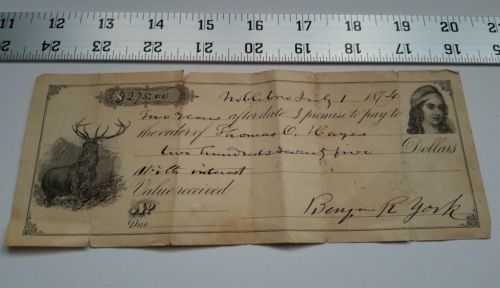 11 12 13 14 15 16 17 18 19 20 21
12 13 14 15 16 17 18 19 20
$275.00 Nobleboro July 1 1874
Two Years after date I promise to pay to
the order of Thomas O. Hayes
two hundred seventy five Dollars
With interest
Value received
No
Due Benja R York